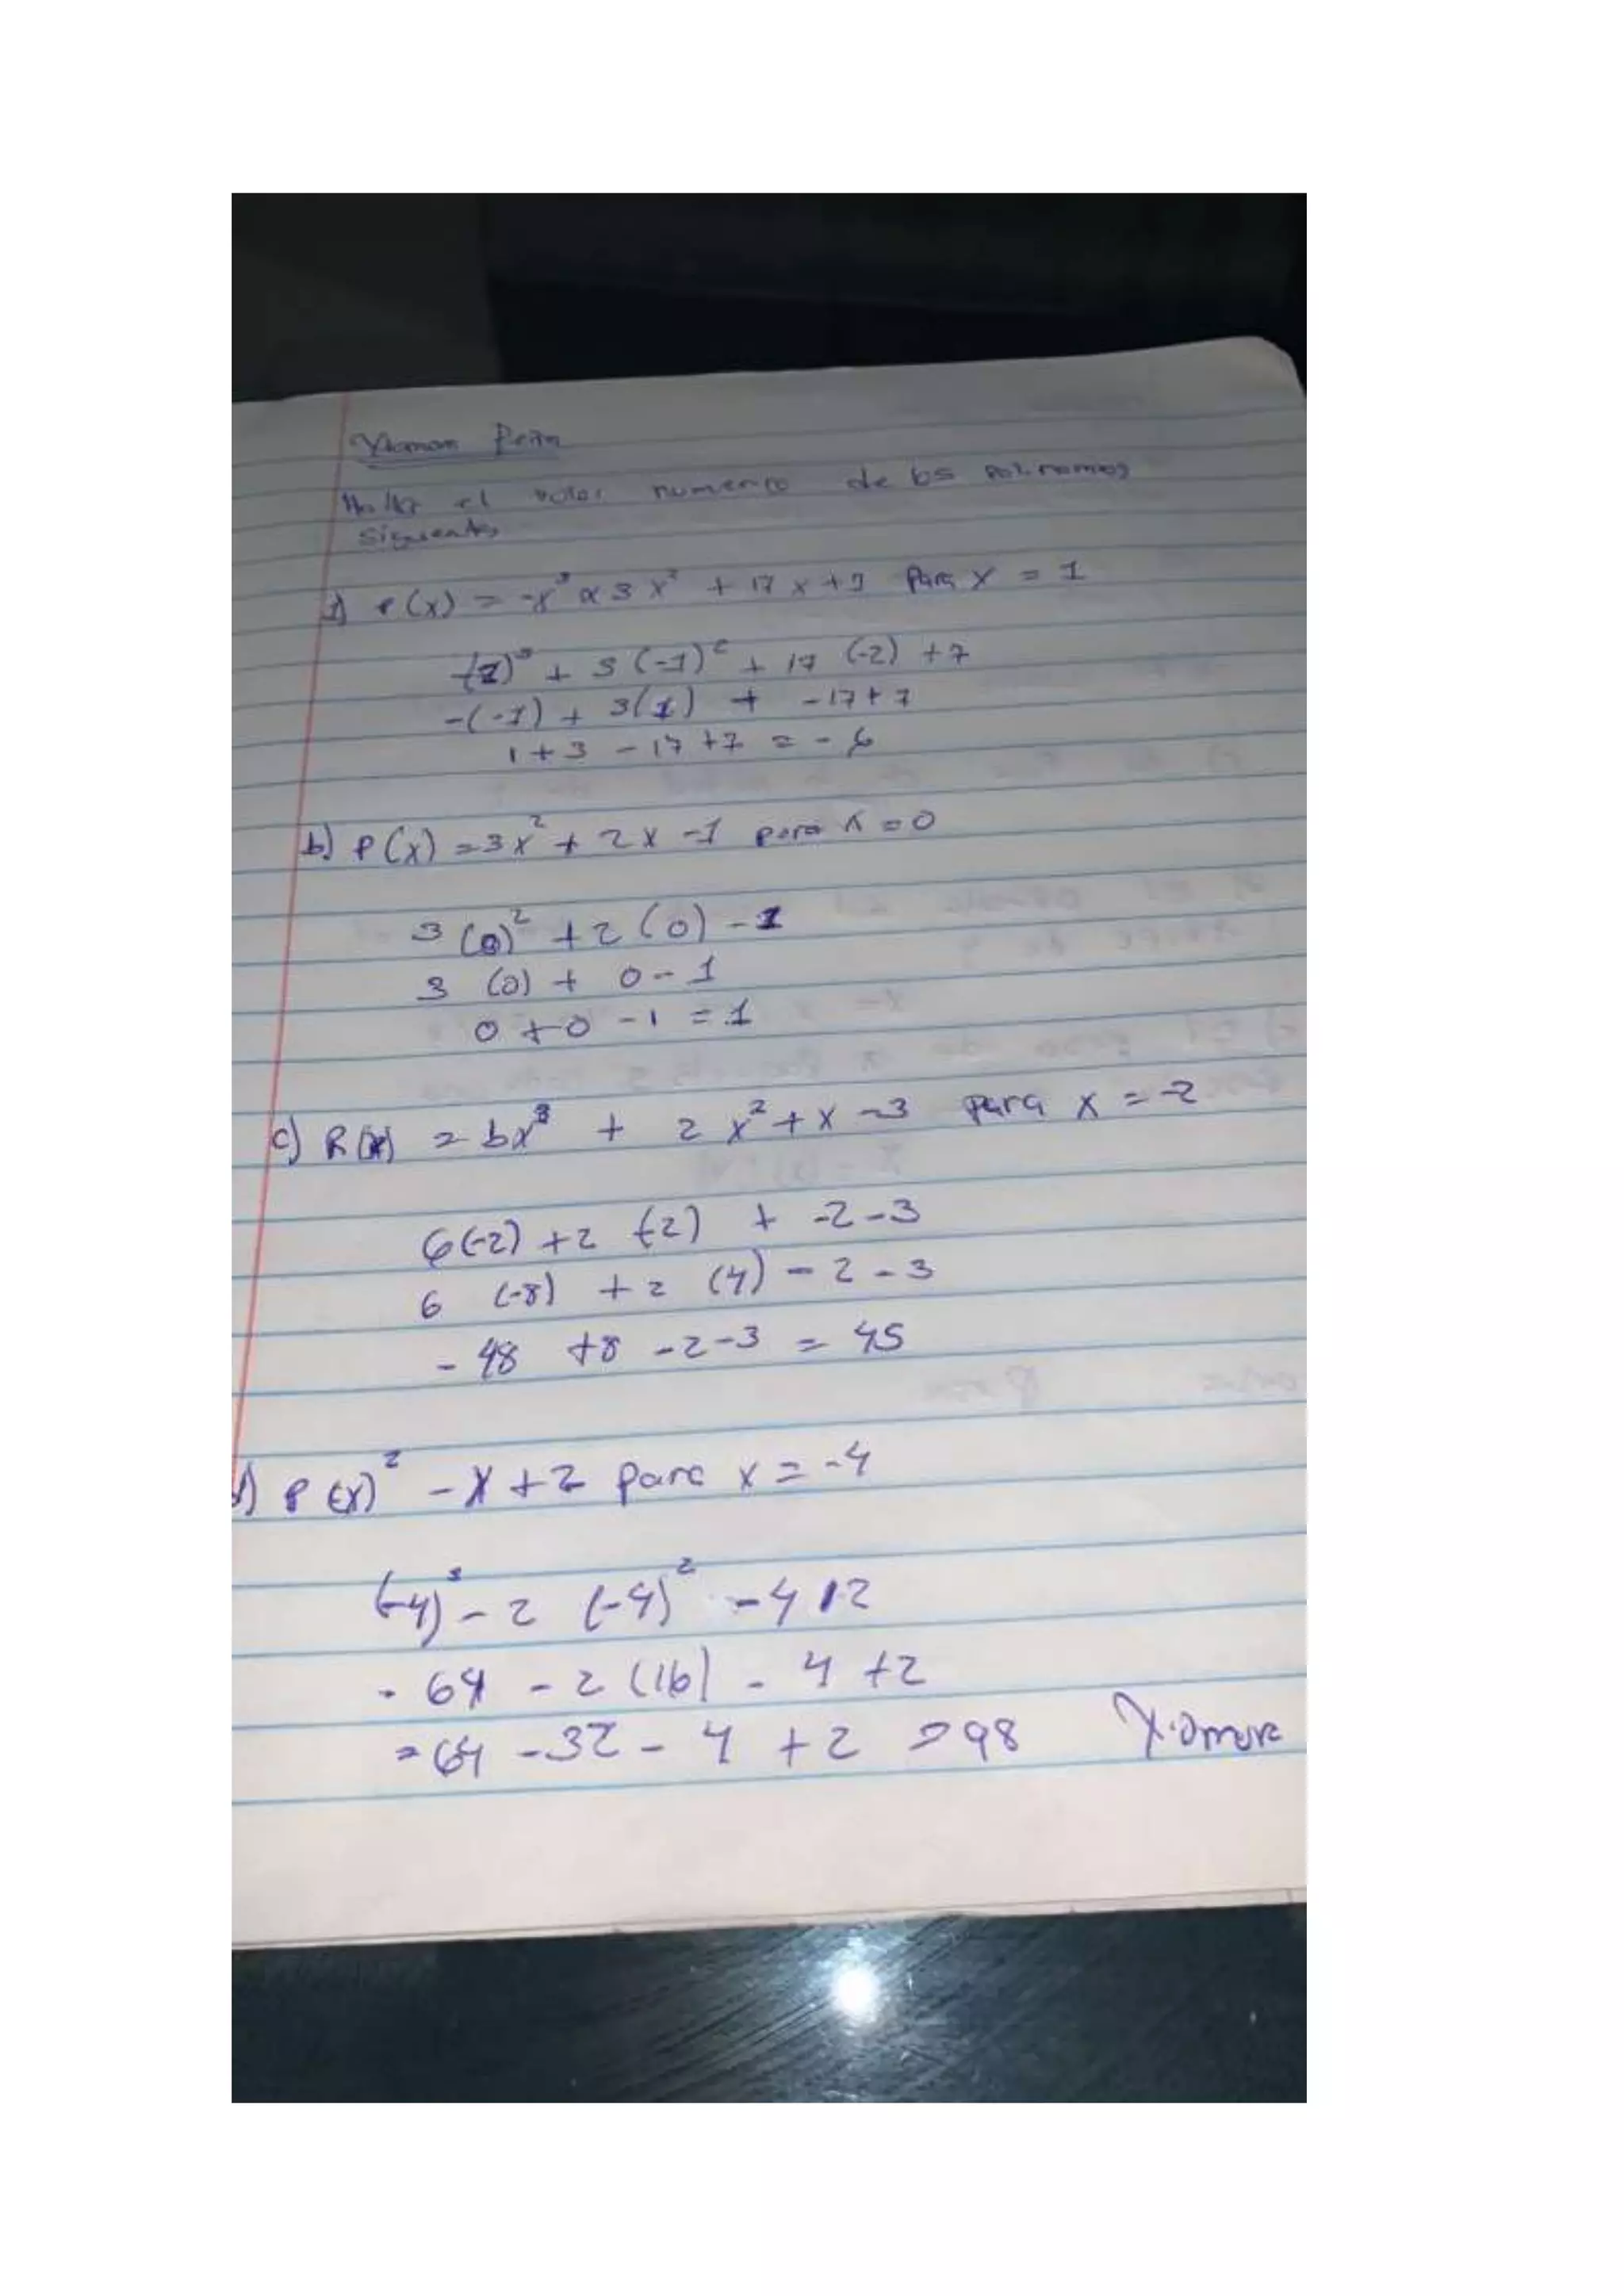 Peña
Hallar el valor numerico de los polinomios
siguientes
P(x) = -x³ 3x² + 17x + 7 para x = 1
(-1)³ + 3(-1)² + 17 (-2) + 7
-(-1) + 3(1) + -17 + 7
1 + 3 - 17 + 7 = -6
b) P(x) = 3x² + 2x - 1 para x = 0
3(0)² + 2(0) - 1
3 (0) + 0 - 1
0 + 0 - 1 = 1
c) R(x) = 6x³ + 2x² + x - 3 para x = -2
6(-2) + 2 (-2) + -2 - 3
6 (-8) + 2 (4) - 2 - 3
- 48 + 8 - 2 - 3 = 45
d) P(x)² - x + 2 para x = -4
(-4)³ - 2 (-4)² - 4 + 2
- 64 - 2 (16) - 4 + 2
= 64 - 32 - 4 + 2 = 98